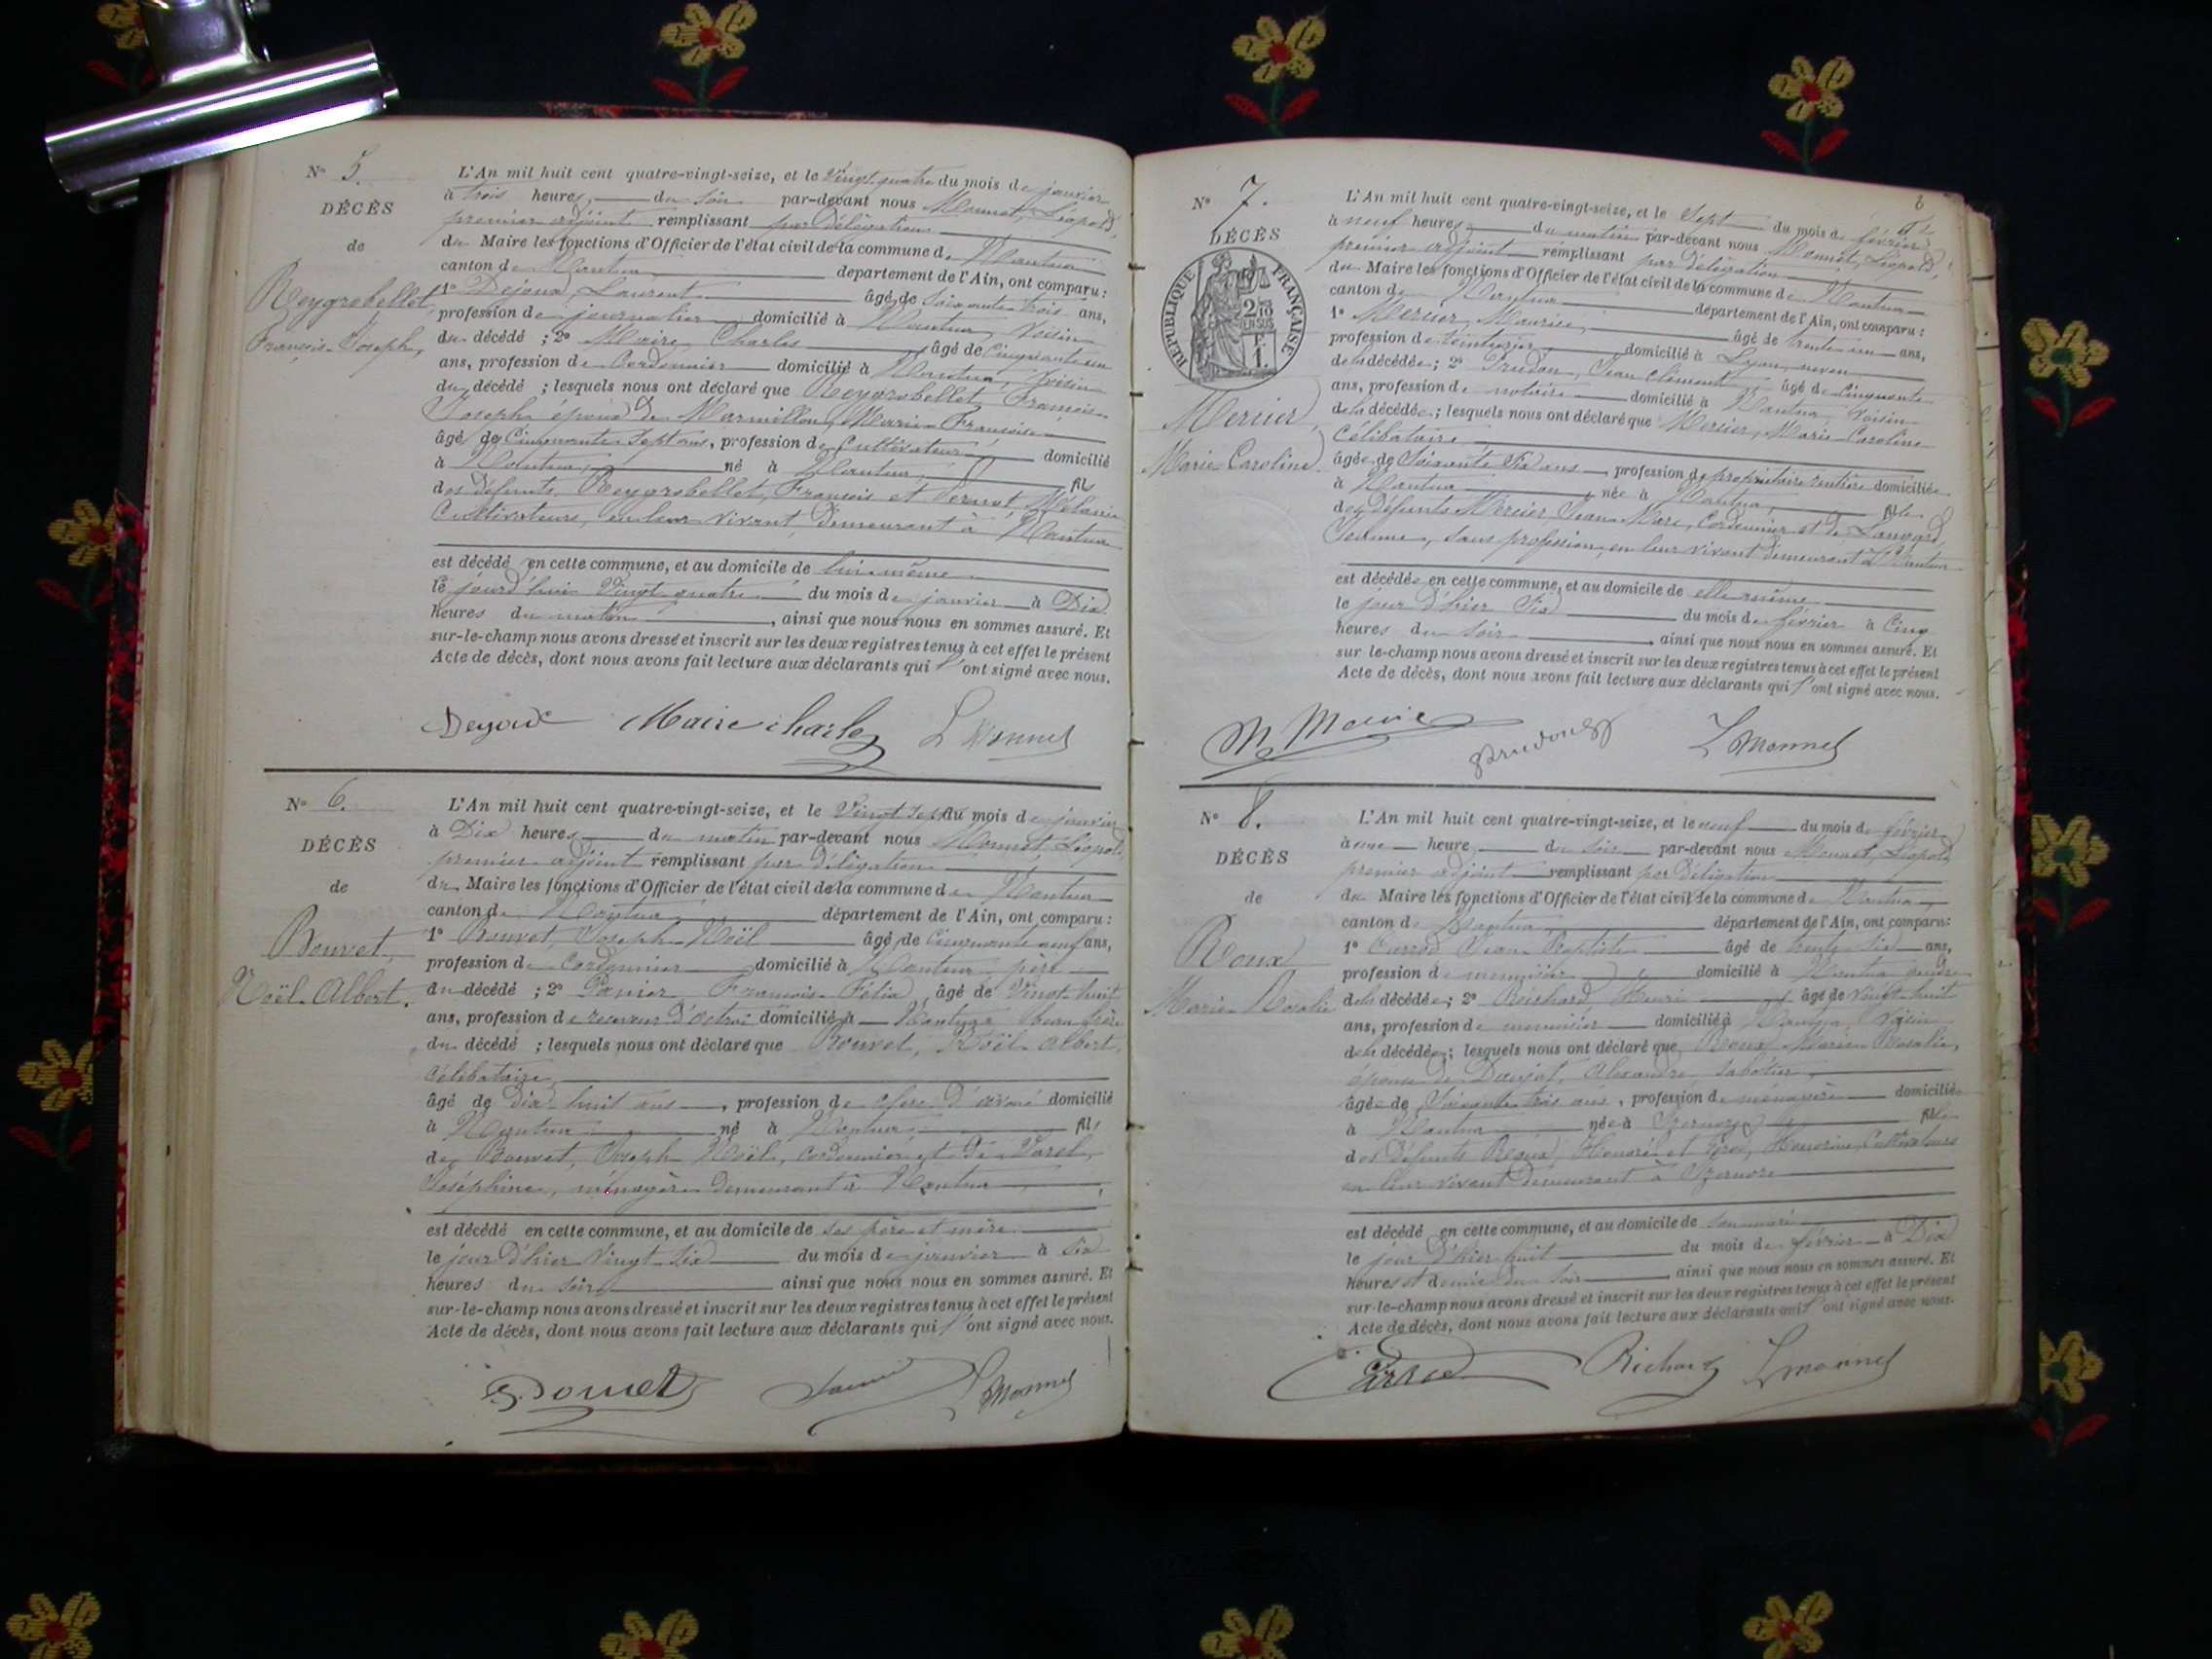 N° 5.
DÉCÈS
de
Reygrobellet,
François-Joseph,
L'An mil huit cent quatre-vingt-seize, et le Vingt quatre du mois de janvier
à trois heures du soir par-devant nous Monnet, Léopold,
premier adjoint remplissant par délégation
du Maire les fonctions d'Officier de l'état civil de la commune de Nantua
canton de Nantua département de l'Ain, ont comparu :
1° Dejoux, Laurent âgé de soixante trois ans,
profession de journalier domicilié à Nantua, voisin
du décédé ; 2° Maire Charles âgé de cinquante un
ans, profession de cordonnier domicilié à Nantua, voisin
du décédé ; lesquels nous ont déclaré que Reygrobellet, François
Joseph époux de Marmillon, Marie Françoise
âgé de Cinquante-sept ans, profession de Cultivateur domicilié
à Nantua, né à Nantua, fils
des défunts Reygrobellet, François et Mélanie
Cultivateurs, en leur vivant demeurant à Nantua
est décédé en cette commune, et au domicile de lui-même
le jourd'hui Vingt quatre du mois de janvier à Dix
heures du matin, ainsi que nous nous en sommes assuré. Et
sur-le-champ nous avons dressé et inscrit sur les deux registres tenus à cet effet le présent
Acte de décès, dont nous avons fait lecture aux déclarants qui l'ont signé avec nous.
Dejoux Maire charles L Monnet
N° 6.
DÉCÈS
de
Bouvet,
Noël-Albert.
L'An mil huit cent quatre-vingt-seize, et le Vingt sept du mois de janvier
à Dix heures du matin par-devant nous Monnet Léopold,
premier adjoint remplissant par délégation
du Maire les fonctions d'Officier de l'état civil de la commune de Nantua
canton de Nantua département de l'Ain, ont comparu :
1° Bouvet, Joseph-Noël âgé de cinquante neuf ans,
profession de cordonnier domicilié à Nantua, père
du décédé ; 2° Panier François-Félix, âgé de Vingt-huit
ans, profession de receveur d'octroi domicilié à Nantua beau frère
du décédé ; lesquels nous ont déclaré que Bouvet, Noël Albert,
célibataire
âgé de Dix-huit ans, profession de clerc d'avoué domicilié
à Nantua né à Nantua fils
de Bouvet, Joseph Noël, cordonnier et de
Joséphine, ménagère demeurant à Nantua
est décédé en cette commune, et au domicile de ses père et mère
le jour d'hier Vingt-six du mois de janvier à six
heures du soir ainsi que nous nous en sommes assuré. Et
sur-le-champ nous avons dressé et inscrit sur les deux registres tenus à cet effet le présent
Acte de décès, dont nous avons fait lecture aux déclarants qui l'ont signé avec nous.
Bouvet L Monnet
8
N° 7.
DÉCÈS
RÉPUBLIQUE FRANÇAISE
2/10 EN SUS
F. 1.
Mercier,
Marie-Caroline.
L'An mil huit cent quatre-vingt-seize, et le Sept du mois de février
à neuf heures du matin par-devant nous Monnet, Léopold,
premier adjoint remplissant par délégation
du Maire les fonctions d'Officier de l'état civil de la commune de Nantua
canton de Nantua département de l'Ain, ont comparu :
1° Mercier, Maurice, âgé de trente un ans,
profession de teinturier domicilié à Lyon, neveu
de la décédée ; 2° Prudon, Jean Clément, âgé de cinquante
ans, profession de notaire domicilié à Nantua voisin
de la décédée ; lesquels nous ont déclaré que Mercier, Marie-Caroline
Célibataire
âgée de Soixante six ans profession de propriétaire rentière domiciliée
à Nantua née à Nantua, fille
des défunts Mercier Jean-Marc, Cordonnier et de
Jeanne, sans profession, en leur vivant demeurant à Nantua
est décédée en cette commune, et au domicile de elle même
le jour d'hier Six du mois de février à Cinq
heures du soir, ainsi que nous nous en sommes assuré. Et
sur le-champ nous avons dressé et inscrit sur les deux registres tenus à cet effet le présent
Acte de décès, dont nous avons fait lecture aux déclarants qui l'ont signé avec nous.
Prudon L Monnet
N° 8.
DÉCÈS
de
Roux
Marie Rosalie
L'An mil huit cent quatre-vingt-seize, et le neuf du mois de février
à une heure du soir par-devant nous Monnet, Léopold
premier adjoint remplissant par délégation
du Maire les fonctions d'Officier de l'état civil de la commune de Nantua
canton de Nantua département de l'Ain, ont comparu :
1° Jean Baptiste âgé de trente six ans,
profession de menuisier domicilié à Nantua gendre
de la décédée ; 2° Henri âgé de vingt-huit
ans, profession de menuisier domicilié à Nantua, voisin
de la décédée ; lesquels nous ont déclaré que Roux Marie Rosalie,
épouse de Alexandre, sabotier,
âgée de Soixante trois ans, profession de ménagère domiciliée
à Nantua née à Izernore fille
des défunts Roux, Honoré et Honorine, Cultivateurs
en leur vivant demeurant à Izernore
est décédé en cette commune, et au domicile de son mari
le jour d'hier huit du mois de février à Dix
heures et demie du soir, ainsi que nous nous en sommes assuré. Et
sur-le-champ nous avons dressé et inscrit sur les deux registres tenus à cet effet le présent
Acte de décès, dont nous avons fait lecture aux déclarants qui l'ont signé avec nous.
Richard L Monnet